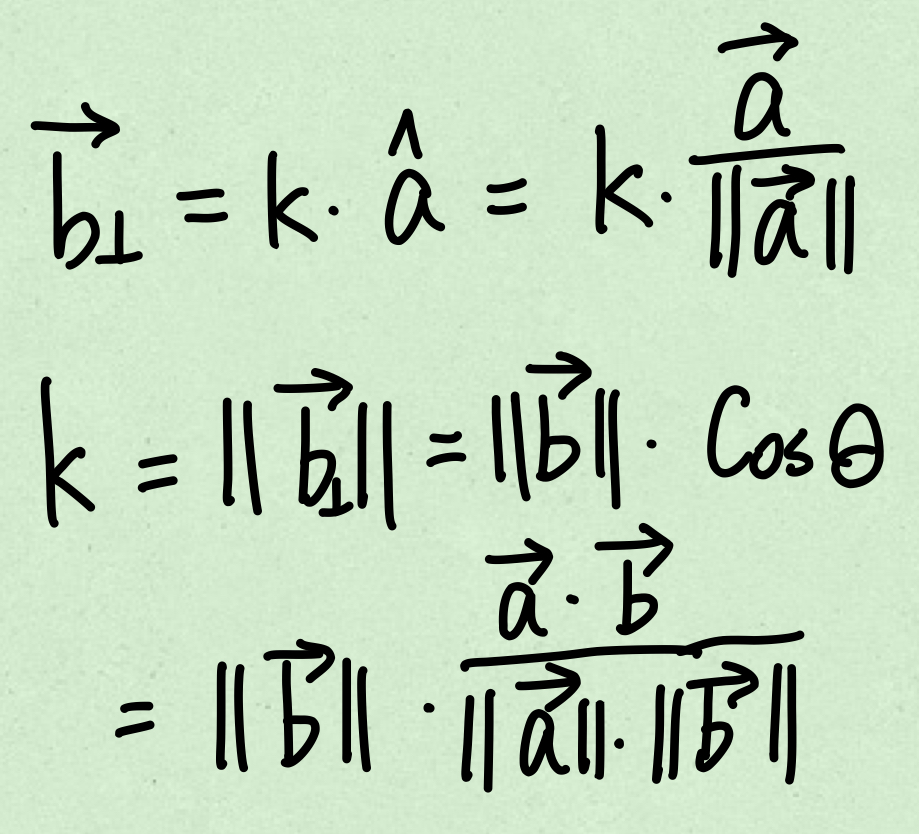 $\vec{b}_\perp = k \cdot \hat{a} = k \cdot \frac{\vec{a}}{\|\vec{a}\|}$
$k = \|\vec{b}_\perp\| = \|\vec{b}\| \cdot \cos\theta$
$= \|\vec{b}\| \cdot \frac{\vec{a} \cdot \vec{b}}{\|\vec{a}\| \cdot \|\vec{b}\|}$